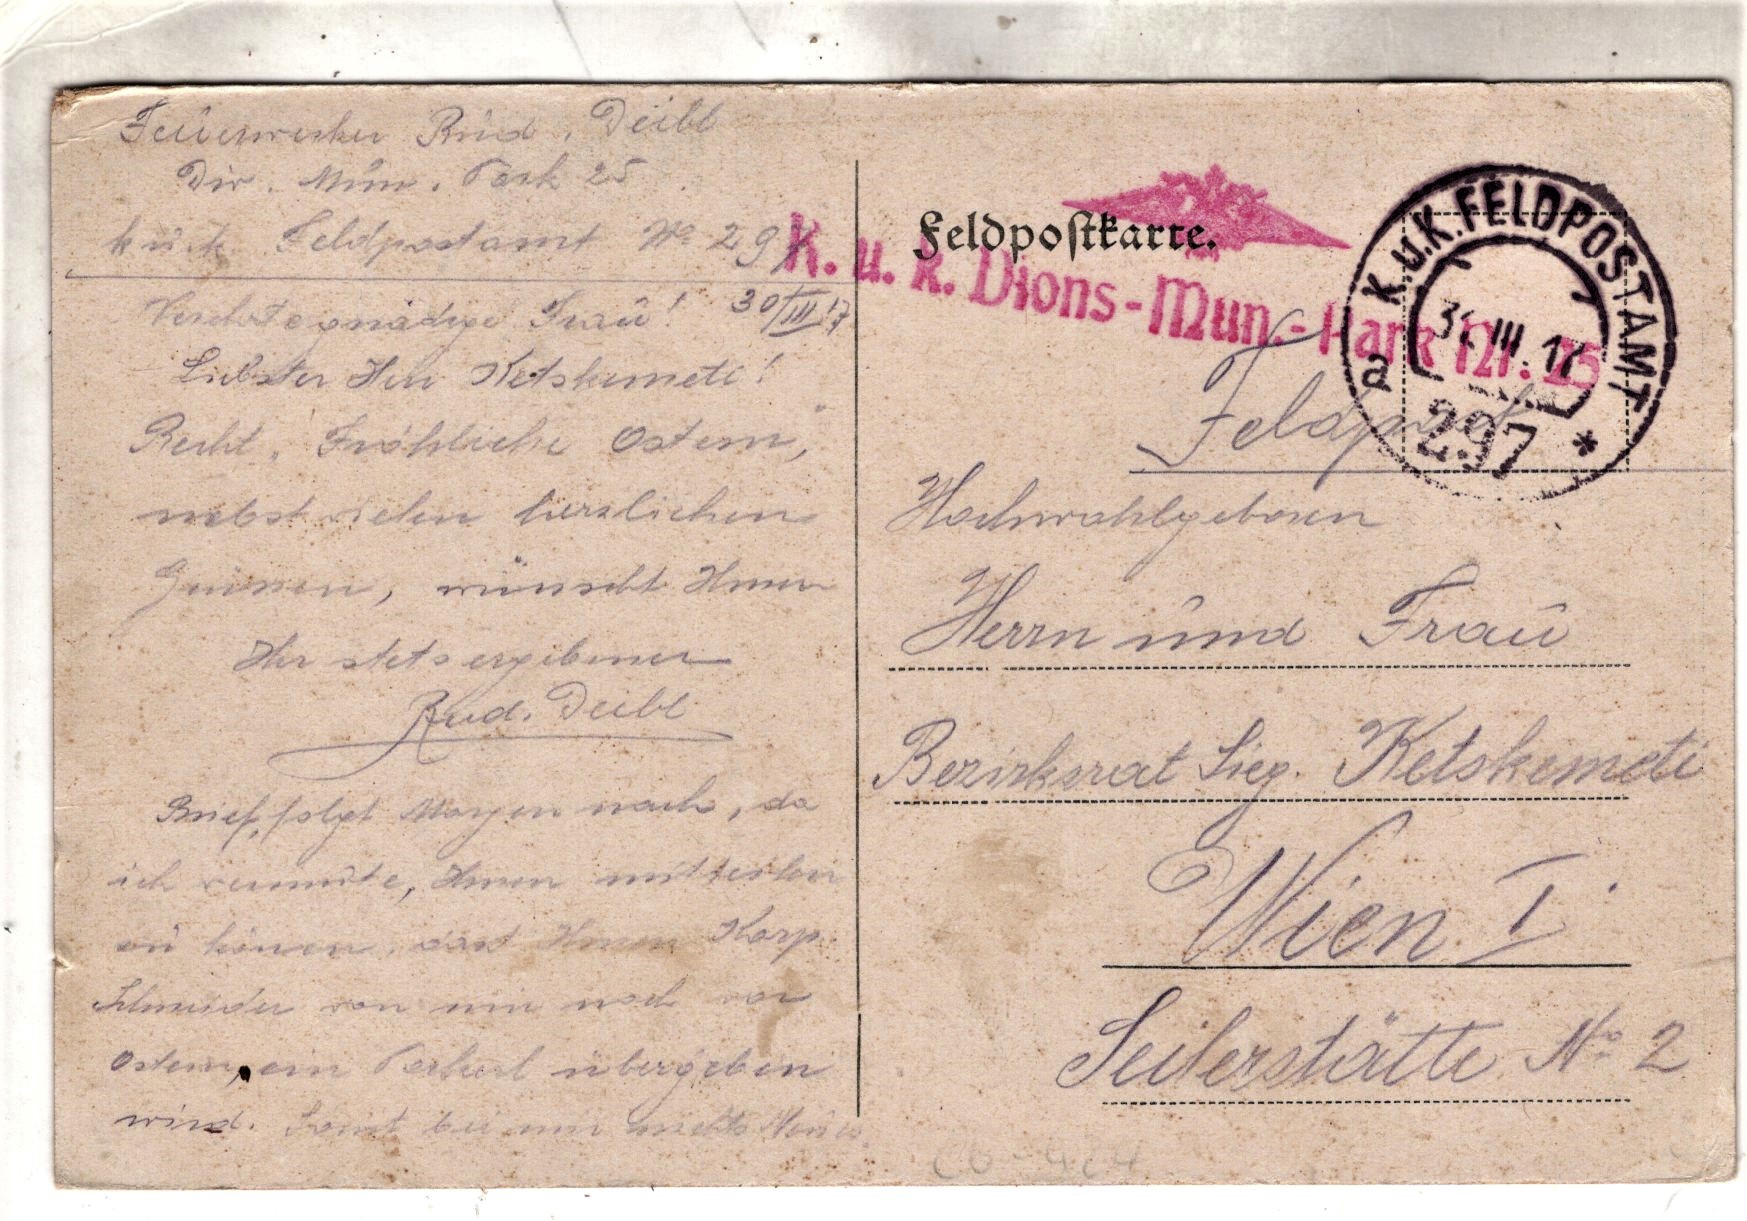 Feuerwerker Rud. Deibl
Div. Mun. Park 25
k u k Feldpostamt No 297
30/III 17
Verehrte gnädige Frau!
Liebster Herr Ketskemeti!
Recht "Fröhliche Ostern,"
nebst vielen herzlichen
Grüssen, wünscht Ihnen
Ihr stets ergebener
Rud. Deibl
Brief folgt Morgen nach, da
ich vermute, Ihnen mitteilen
zu können, dass Ihnen Korp.
Schneider von mir noch vor
Ostern, ein Packerl übergeben
wird. Sonst bei mir nichts Neues.
Feldpostkarte.
K. u. k. Dions-Mun.-Park Nr. 25
K.U.K. FELDPOSTAMT
a
31. III. 17
297 *
Feldpost
Hochwohlgeboren
Herrn und Frau
Bezirksrat Sieg. Ketskemeti
Wien I.
Seilerstätte No 2